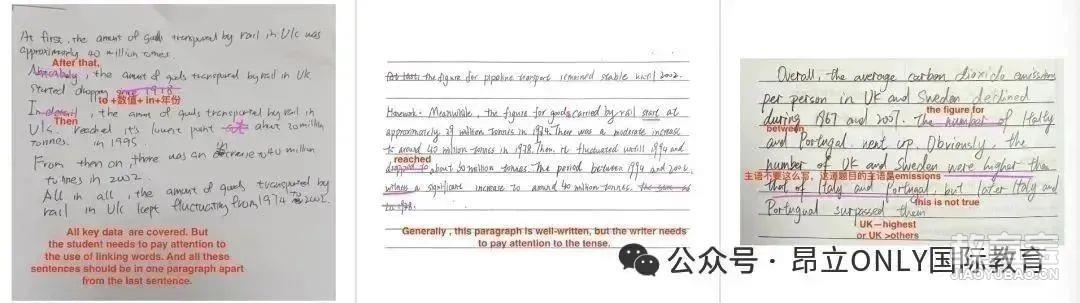 At first, the amount of goods transported by rail in U/c was
approximately 40 million tonnes.
After that,
Noticeably, the amount of goods transported by rail in UK
started dropping since 1978
to +数值+ in+年份
In detail, the amount of goods transported by rail in
Then
U/c. reached it's lowest point at about 20 million
tonnes. in 1995
From then on there was an increase to 40 million
tonnes in 2002.
All in all, the amount of goods transported by
rail in U/c kept fluctuating from 1974 to 2002.
All key data are covered. But
the student needs to pay attention to
the use of linking words. And all these
sentences should be in one paragraph apart
from the last sentence.
the figure for pipeline transport remained stable until 2002.
Homework: Meanwhile, the figure for goods carried by rail start at
approximately 39 million tonnes in 1974. There was a moderate increase
to around 40 million tonnes in 1978. Then, it fluctuated untill 1994 and
reached
dropped to about 30 million tonnes. The period between 1994 and 2002,
witness a significant increase to around 40 million tonnes.
Generally , this paragraph is well-written, but the writer needs
to pay attention to the tense.
Overall, the average carbon dioxide emissions
per person in UK and Sweden declined
the figure for
during 1967 and 2007. The number of Itally
between
and Portugal went up. Obviously, the
number of UK and Sweden were higher than
主语不要这么写，这道题目的主语是emissions
that of Italy and Portugal, but later Italy and
this is not true
Portugual surpassed them
UK—highest
or UK >others
公众号 · 昂立ONLY国际教育
JIAOYUBAO.CN